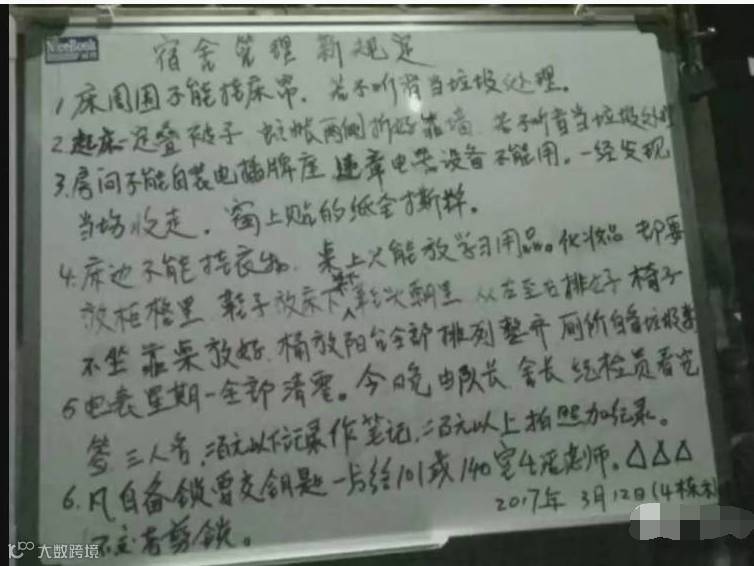 NiceBook
宿舍管理新规定
1.床周围不能挂床帘．若不听者当垃圾处理。
2.起床一定叠被子 蚊帐两侧折好靠墙 若不听者当垃圾处理
3.房间不能自装电插牌座 违章电器设备不能用。一经发现
当场收走．窗上贴的纸全才撕粹。
4.床边不能挂衣物．桌上只能放学习用品。化妆品 都要
放柜橙里 鞋子放床下 鞋尖朝里 从左至右排好 椅子
不坐靠桌放好．桶放阳台全部排列整齐 厕所自备垃圾袋
5 电表星期一全部清零。今晚由队长 舍长 纪检员看完
签三人名，二百元以下记录作笔记，二百元以上拍照加纪录。
6.凡自备锁要交钥匙一把给101或140室生活老师。△△△
不交者剪锁。
2017年 3月12日(4栋
大数跨境